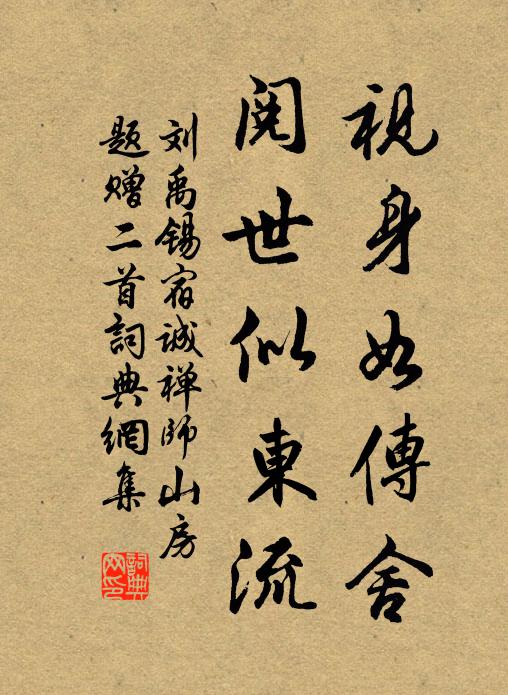 視身如傳舍
閱世似東流
刘禹锡宿诚禅师山房
题赠二首詞典網集
詞典网印